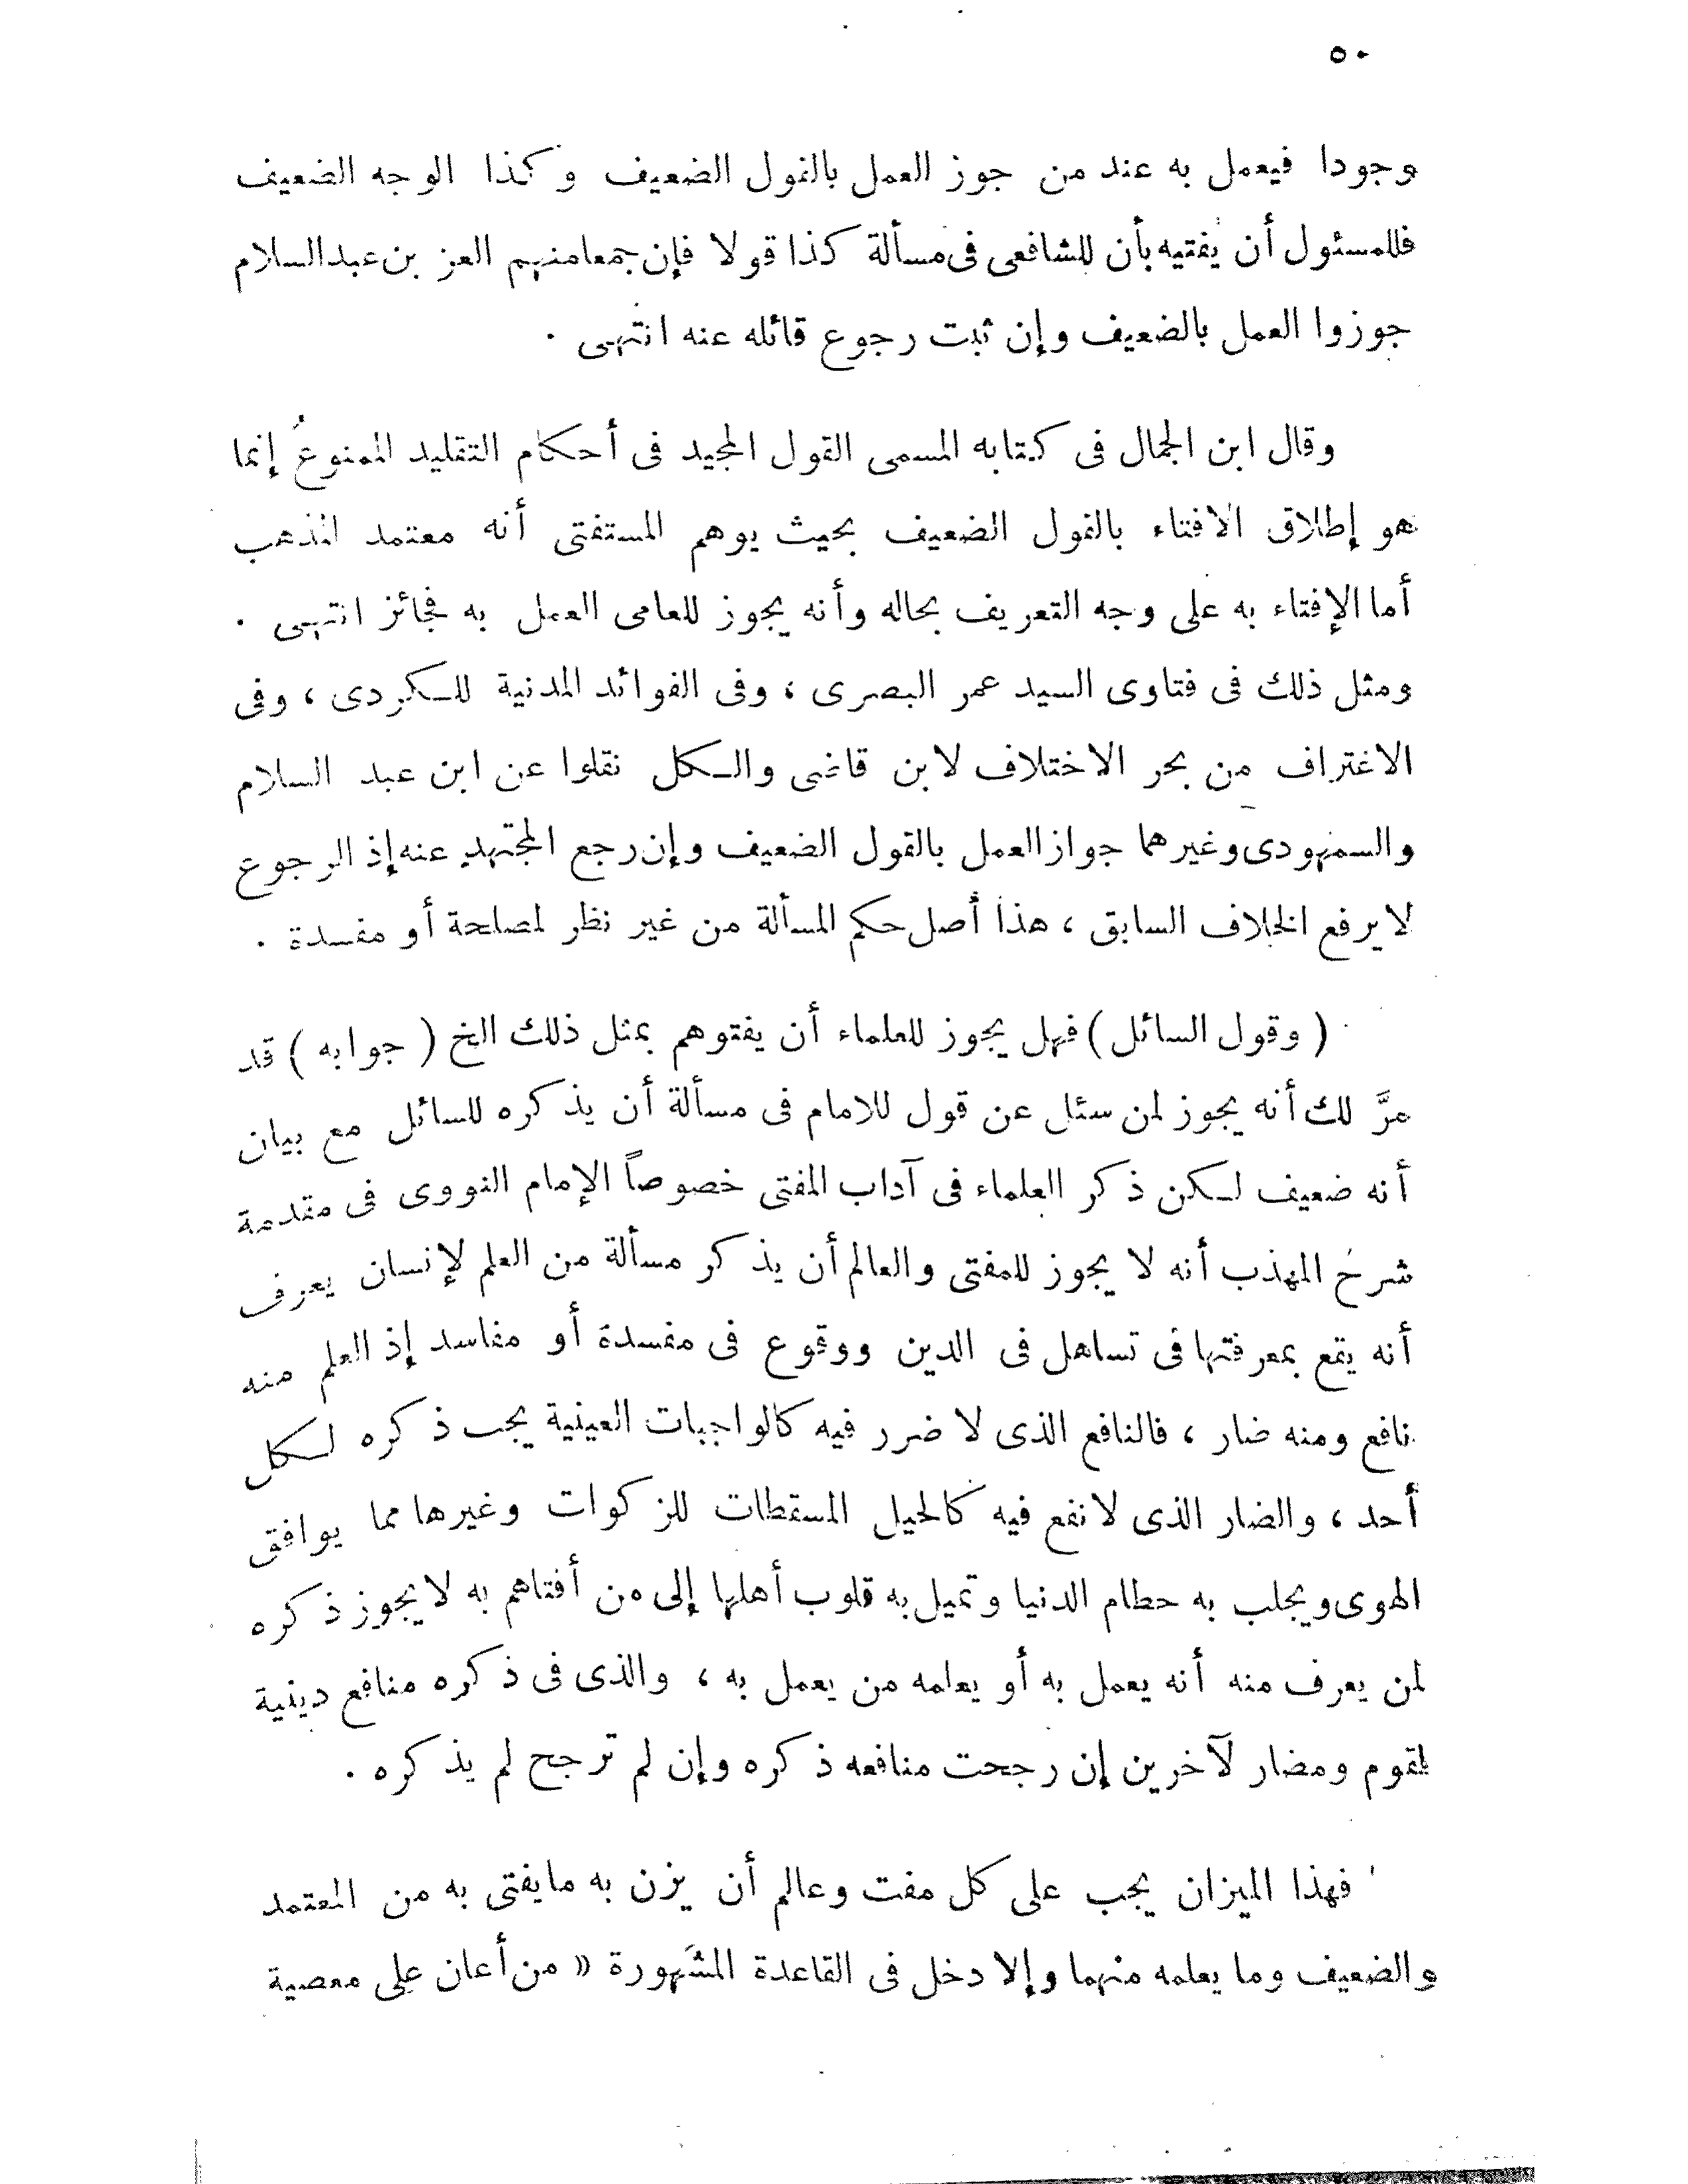 ٥٠
وجودا فيعمل به عند من جوز العمل بالقول الضعيف وكذا الوجه الضعيف
فللمسئول أن يفتيه بأن للشافعى فى مسألة كذا قولا فإن جمعا منهم العز بن عبد السلام
جوزوا العمل بالضعيف وإن ثبت رجوع قائله عنه انتهى .
وقال ابن الجمال فى كتابه المسمى القول المجيد فى أحكام التقليد الممنوع إنما
هو إطلاق الافتاء بالقول الضعيف بحيث يوهم المستفتى أنه معتمد المذهب
أما الإفتاء به على وجه التعريف بحاله وأنه يجوز للعامى العمل به فجائز انتهى .
ومثل ذلك فى فتاوى السيد عمر البصرى ، وفى الفوائد المدنية للكردى ، وفى
الاغتراف من بحر الاختلاف لابن قاضى والكل نقلوا عن ابن عبد السلام
والسمهودى وغيرهما جواز العمل بالقول الضعيف وإن رجع المجتهد عنه إذ الرجوع
لا يرفع الخلاف السابق ، هذا أصل حكم المسألة من غير نظر لمصلحة أو مفسدة .
( وقول السائل ) فهل يجوز للعلماء أن يفتوهم بمثل ذلك الخ ( جوابه ) قد
مرَّ لك أنه يجوز لمن سئل عن قول للامام فى مسألة أن يذكره للسائل مع بيان
أنه ضعيف لكن ذكر العلماء فى آداب المفتى خصوصاً الإمام النووى فى مقدمة
شرح المهذب أنه لا يجوز للمفتى والعالم أن يذكر مسألة من العلم لإنسان يعرف
أنه يقع بمعرفتها فى تساهل فى الدين ووقوع فى مفسدة أو مفاسد إذ العلم منه
نافع ومنه ضار ، فالنافع الذى لا ضرر فيه كالواجبات العينية يجب ذكره لكل
أحد ، والضار الذى لا نفع فيه كالحيل المسقطات للزكوات وغيرها مما يوافق
الهوى ويجلب به حطام الدنيا وتميل به قلوب أهلها إلى من أفتاهم به لا يجوز ذكره
لمن يعرف منه أنه يعمل به أو يعلمه من يعمل به ، والذى فى ذكره منافع دينية
لقوم ومضار لآخرين إن رجحت منافعه ذكره وإن لم ترجح لم يذكره .
فهذا الميزان يجب على كل مفت وعالم أن يزن به ما يفتى به من المعتمد
والضعيف وما يعلمه منهما وإلا دخل فى القاعدة المشهورة « من أعان على معصية